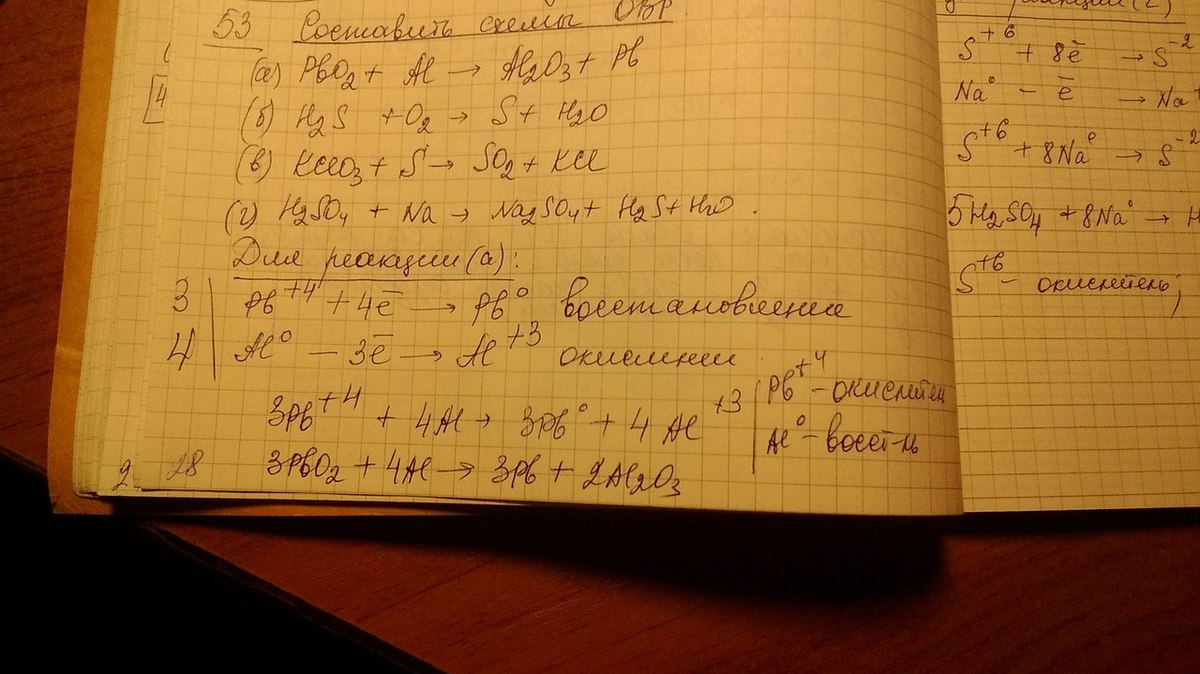 53 Составить схемы ОВР
(а) PbO₂ + Al → Al₂O₃ + Pb
(б) H₂S + O₂ → S + H₂O
(в) KClO₃ + S → SO₂ + KCl
(г) H₂SO₄ + Na → Na₂SO₄ + H₂S + H₂O.
Для реакции (а):
3 | Pb⁺⁴ + 4ē → Pb⁰ восстановление
4 | Al⁰ − 3ē → Al⁺³ окислении
3Pb⁺⁴ + 4Al → 3Pb⁰ + 4Al⁺³
Pb⁺⁴ – окислител
Al⁰ – восст-ль
2 28 3PbO₂ + 4Al → 3Pb + 2Al₂O₃
реакции (г)
S⁺⁶ + 8ē → S⁻²
Na⁰ − ē → Na⁺
S⁺⁶ + 8Na⁰ → S⁻²
5H₂SO₄ + 8Na⁰ → H
S⁺⁶ – окислитель;